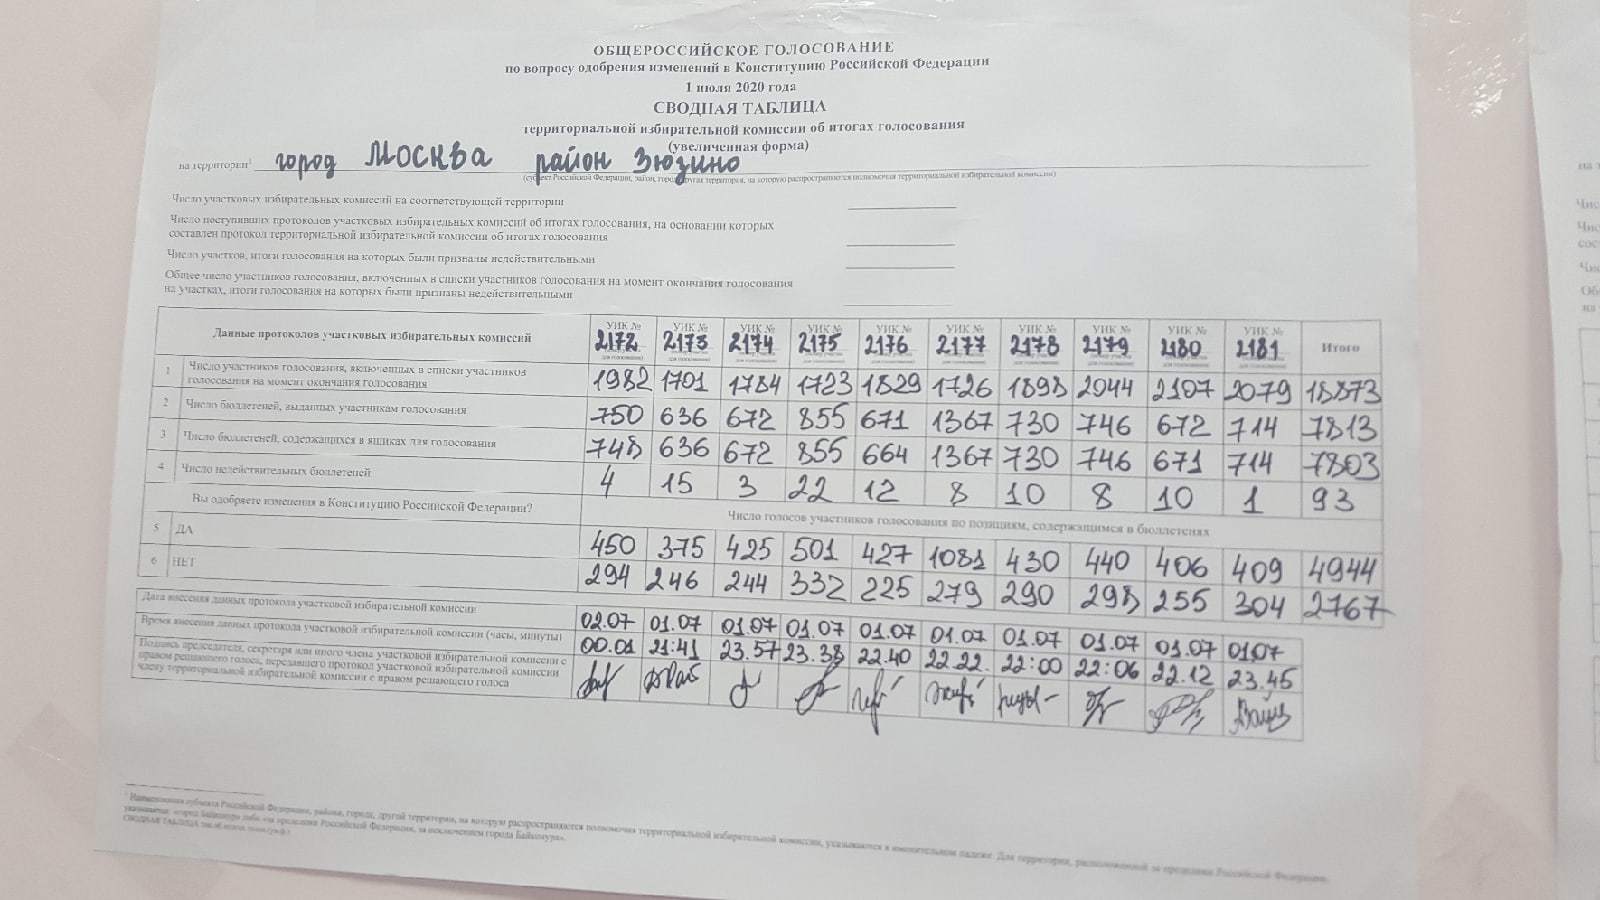 ОБЩЕРОССИЙСКОЕ ГОЛОСОВАНИЕ
по вопросу одобрения изменений в Конституцию Российской Федерации
1 июля 2020 года
СВОДНАЯ ТАБЛИЦА
территориальной избирательной комиссии об итогах голосования
(увеличенная форма)
на территории¹ город Москва район Зюзино
(субъект Российской Федерации, район, город, другая территория, на которую распространяются полномочия территориальной избирательной комиссии)
Число участковых избирательных комиссий на соответствующей территории
Число поступивших протоколов участковых избирательных комиссий об итогах голосования, на основании которых
составлен протокол территориальной избирательной комиссии об итогах голосования
Число участков, итоги голосования на которых были признаны недействительными
Общее число участников голосования, включенных в списки участников голосования на момент окончания голосования
на участках, итоги голосования на которых были признаны недействительными
Данные протоколов участковых избирательных комиссий УИК № 2172 УИК № 2173 УИК № 2174 УИК № 2175 УИК № 2176 УИК № 2177 УИК № 2178 УИК № 2179 УИК № 2180 УИК № 2181 Итого
1 Число участников голосования, включенных в списки участников
голосования на момент окончания голосования 1982 1701 1784 1723 1829 1726 1898 2044 2107 2079 18873
2 Число бюллетеней, выданных участникам голосования 750 636 672 855 671 1367 730 746 672 714 7813
3 Число бюллетеней, содержащихся в ящиках для голосования 748 636 672 855 664 1367 730 746 671 714 7803
4 Число недействительных бюллетеней 4 15 3 22 12 8 10 8 10 1 93
Вы одобряете изменения в Конституцию Российской Федерации? Число голосов участников голосования по позициям, содержащимся в бюллетенях
5 ДА 450 375 425 501 427 1081 430 440 406 409 4944
6 НЕТ 294 246 244 332 225 279 290 298 255 304 2767
Дата внесения данных протокола участковой избирательной комиссии 02.07 01.07 01.07 01.07 01.07 01.07 01.07 01.07 01.07 01.07
Время внесения данных протокола участковой избирательной комиссии (часы, минуты) 00.01 21:41 23.57 23.38 22.40 22.22. 22:00 22:06 22.12 23.45
Подпись председателя, секретаря или иного члена участковой избирательной комиссии с
правом решающего голоса, передавшего протокол участковой избирательной комиссии
члену территориальной избирательной комиссии с правом решающего голоса
¹ Наименования субъекта Российской Федерации, района, города, другой территории, на которую распространяются полномочия территориальной избирательной комиссии, указываются в именительном падеже. Для территории, расположенной за пределами Российской Федерации,
указывается: «город Байконур» либо «за пределами Российской Федерации, за исключением города Байконура».
СВОДНАЯ ТАБЛИЦА